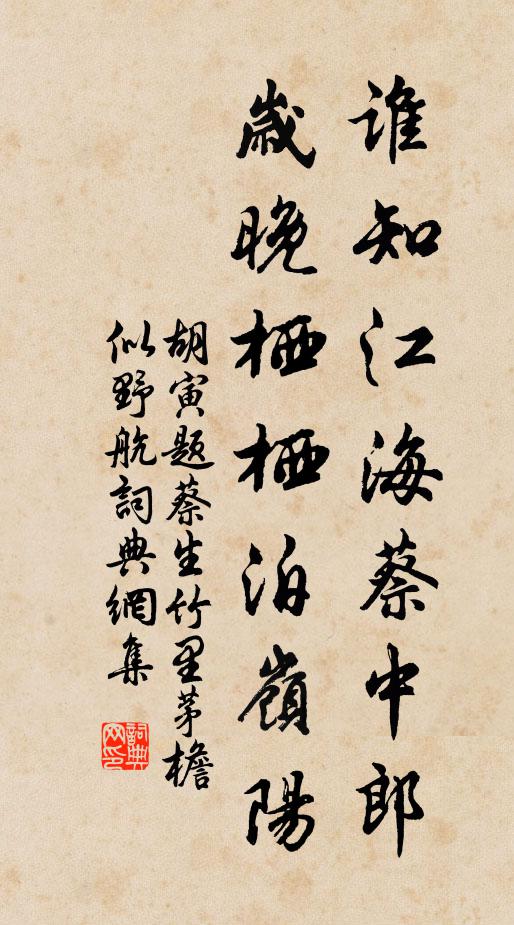 誰知江海蔡中郎
歲晚栖栖泊嶺陽
胡寅題蔡生竹里茅檐
似野航詞典網集
詞典网印